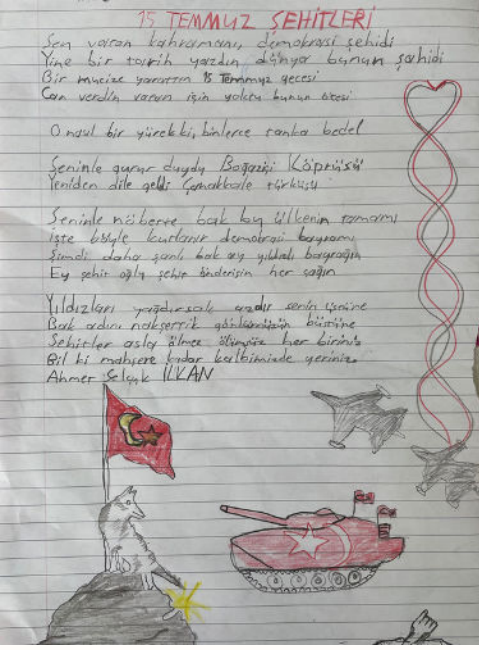 15 TEMMUZ ŞEHİTLERİ
Sen vatan kahramanı, demokrasi şehidi
Yine bir tarih yazdın dünya bunun şahidi
Bir mucize yarattın 15 Temmuz gecesi
Can verdin vatan için yoktu bunun ötesi
O nasıl bir yürek ki, binlerce tanka bedel
Seninle gurur duydu Boğaziçi Köprüsü
Yeniden dile geldi Çanakkale türküsü
Seninle nöbette bak bu ülkenin tamamı
işte böyle kutlanır demokrasi bayramı
Şimdi daha şanlı bak ay yıldızlı bayrağın
Ey şehit oğlu şehit önderisin her çağın
Yıldızları yağdırsak azdır senin üstüne
Bak adını nakşettik gönlümüzün büstüne
Şehitler asla ölmez ölümsüz her biriniz
Bil ki mahşere kadar kalbimizde yeriniz
Ahmet Selçuk İLKAN